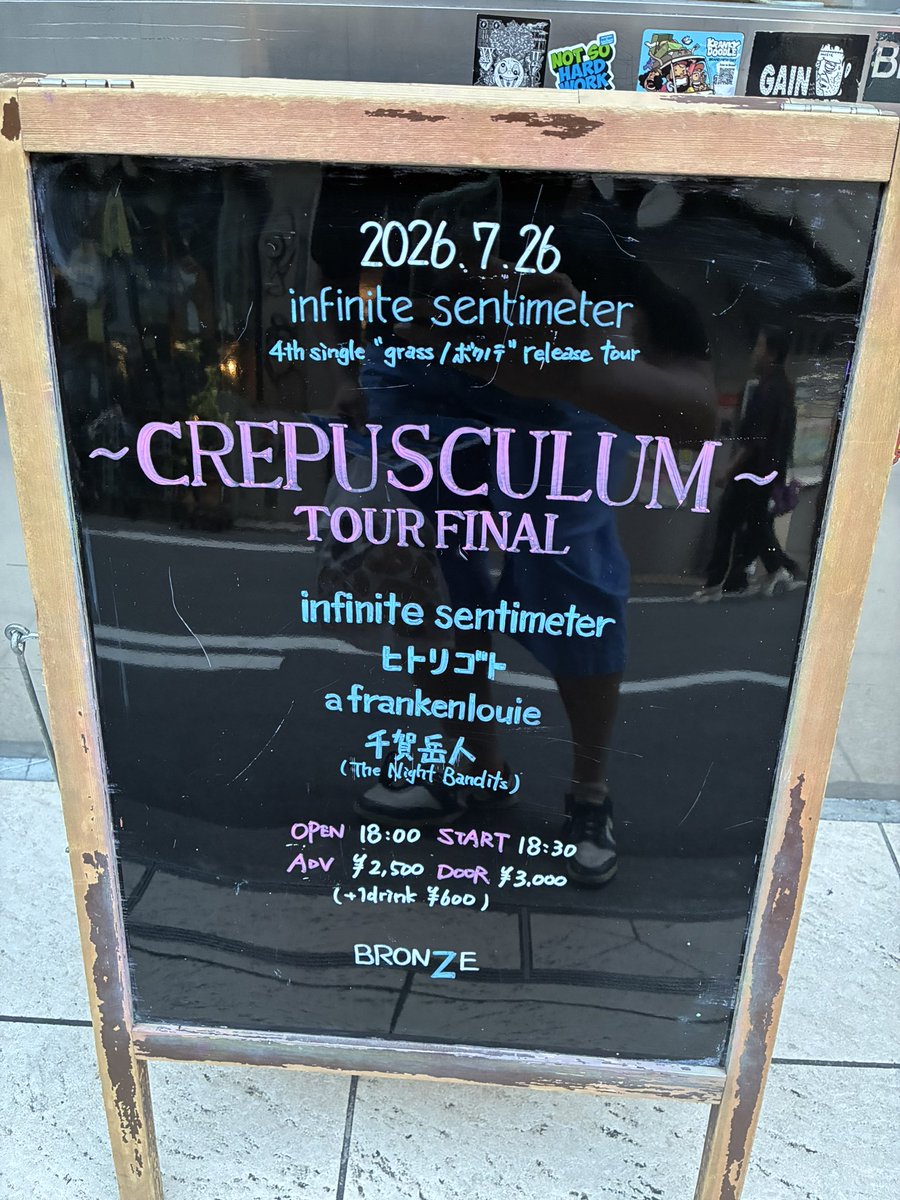 NOT SO
HARD
WORK
KRANKY
DOODLE
GAIN
2026.7.26
infinite sentimeter
4th single "grass / ボクノテ" release tour
~CREPUSCULUM~
TOUR FINAL
infinite sentimeter
ヒトリゴト
a frankenlouie
千賀岳人
(The Night Bandits)
OPEN 18:00 START 18:30
ADV ¥2,500 DOOR ¥3,000
(+1drink ¥600)
BRONZE